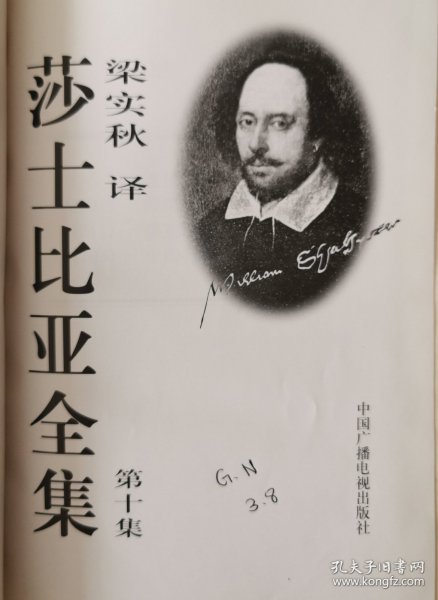 莎士比亚全集
梁实秋 译
第十集
William Shakespeare
G.N
3.8
中国广播电视出版社
孔夫子旧书网
www.kongfz.com